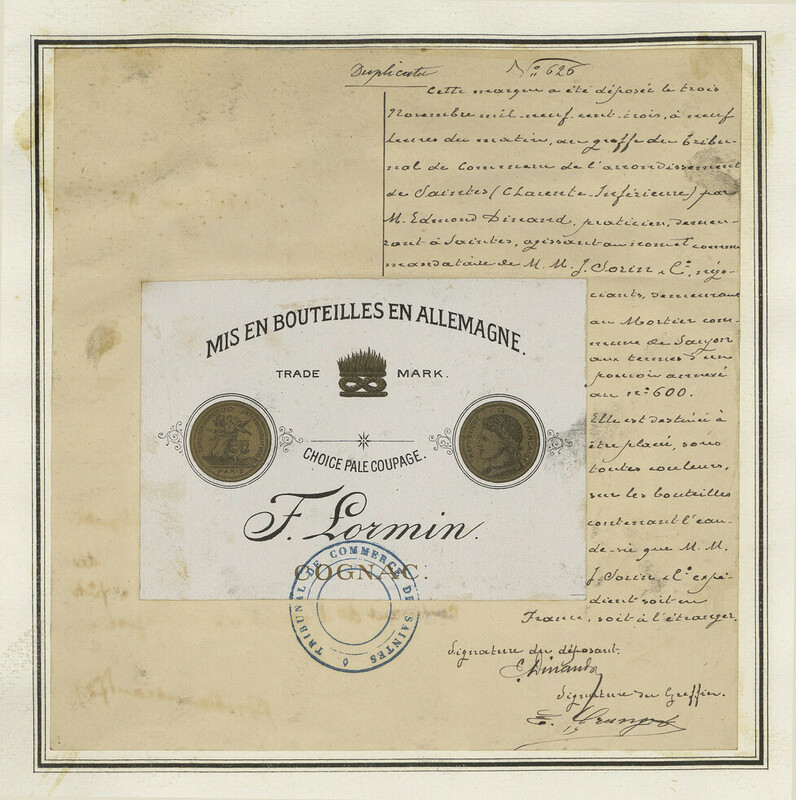 Duplicata
No 626
Cette marque a été déposée le trois
Novembre mil-neuf-cent-trois, à neuf
heures du matin, au greffe du Tribu-
nal de Commerce de l'arrondissement
de Saintes (Charente-Inférieure) par
M. Edmond Dinand, praticien, demeu-
rant à Saintes, agissant au nom et comme
mandataire de M. M. J. Sorin & Cie, négo-
ciants, demeurant
au Mortier com-
mune de
aux termes d'un
pouvoir annexé
au no 600.
Elle est destinée à
être placé, sous
toutes couleurs,
sur les bouteilles
contenant l'eau-
de-vie que M. M.
J. Sorin & Cie expé-
dient soit en
France, soit à l'étranger.
MIS EN BOUTEILLES EN ALLEMAGNE.
TRADE MARK.
PARIS
CHOICE PALE COUPAGE.
F. Lormin.
COGNAC.
TRIBUNAL DE COMMERCE DE SAINTES
Signature du déposant.
E. Dinand
Signature du Greffier.